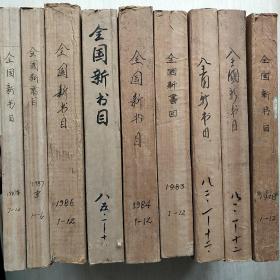 全国新书目
1-12
全国新书目
1987
1-6
全国新书目
1986
1-12
全国新书目
八五.一-十
全国新书目
1984
1-12
全国新書目
1983
1-12
全国新书目
八二.一-十二.
全国新书目
八一.一-十二
全国新书目
1-12